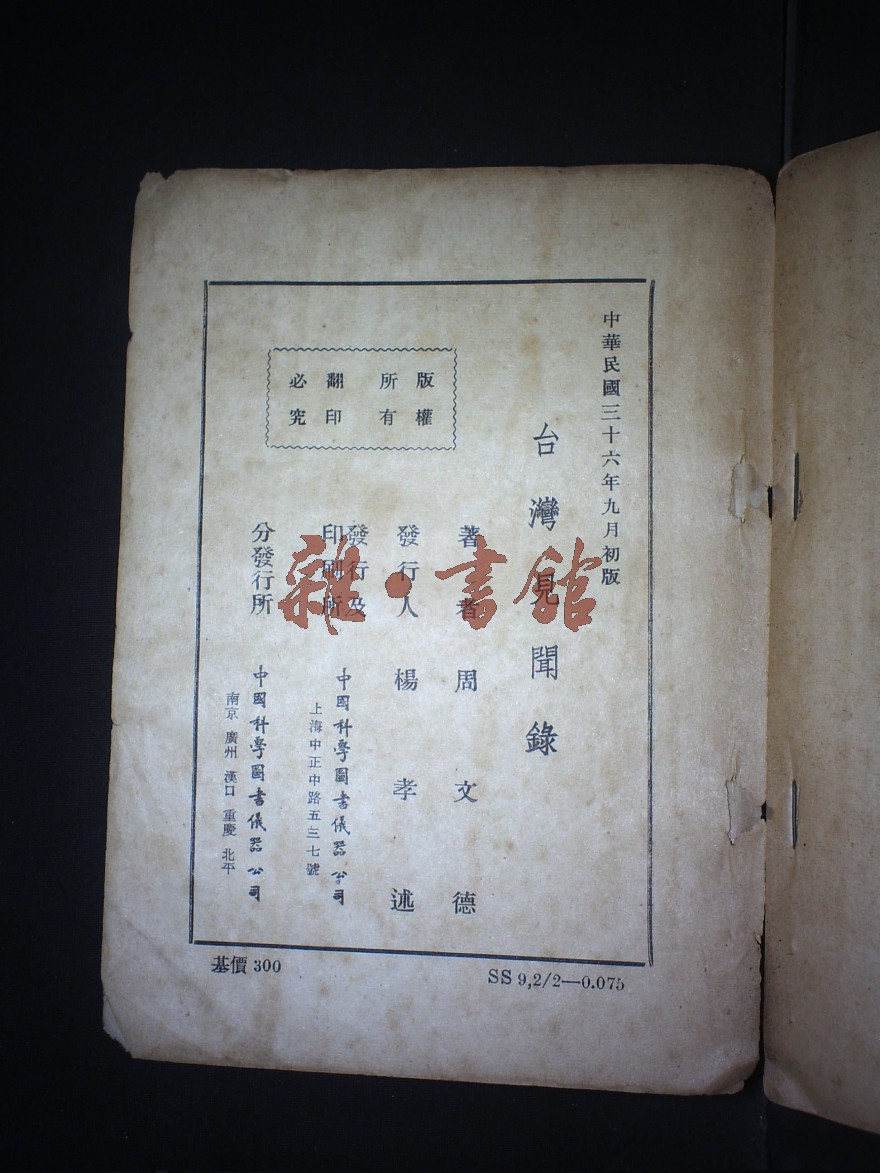 中華民國三十六年九月初版
台灣見聞錄
版權
所有
翻印
必究
著者 周文德
發行人 楊孝述
發行及
印刷所
中國科學圖書儀器公司
上海中正中路五三七號
分發行所 中國科學圖書儀器公司
南京 廣州 漢口 重慶 北平
基價 300
SS 9,2/2—0.075
雜·書館